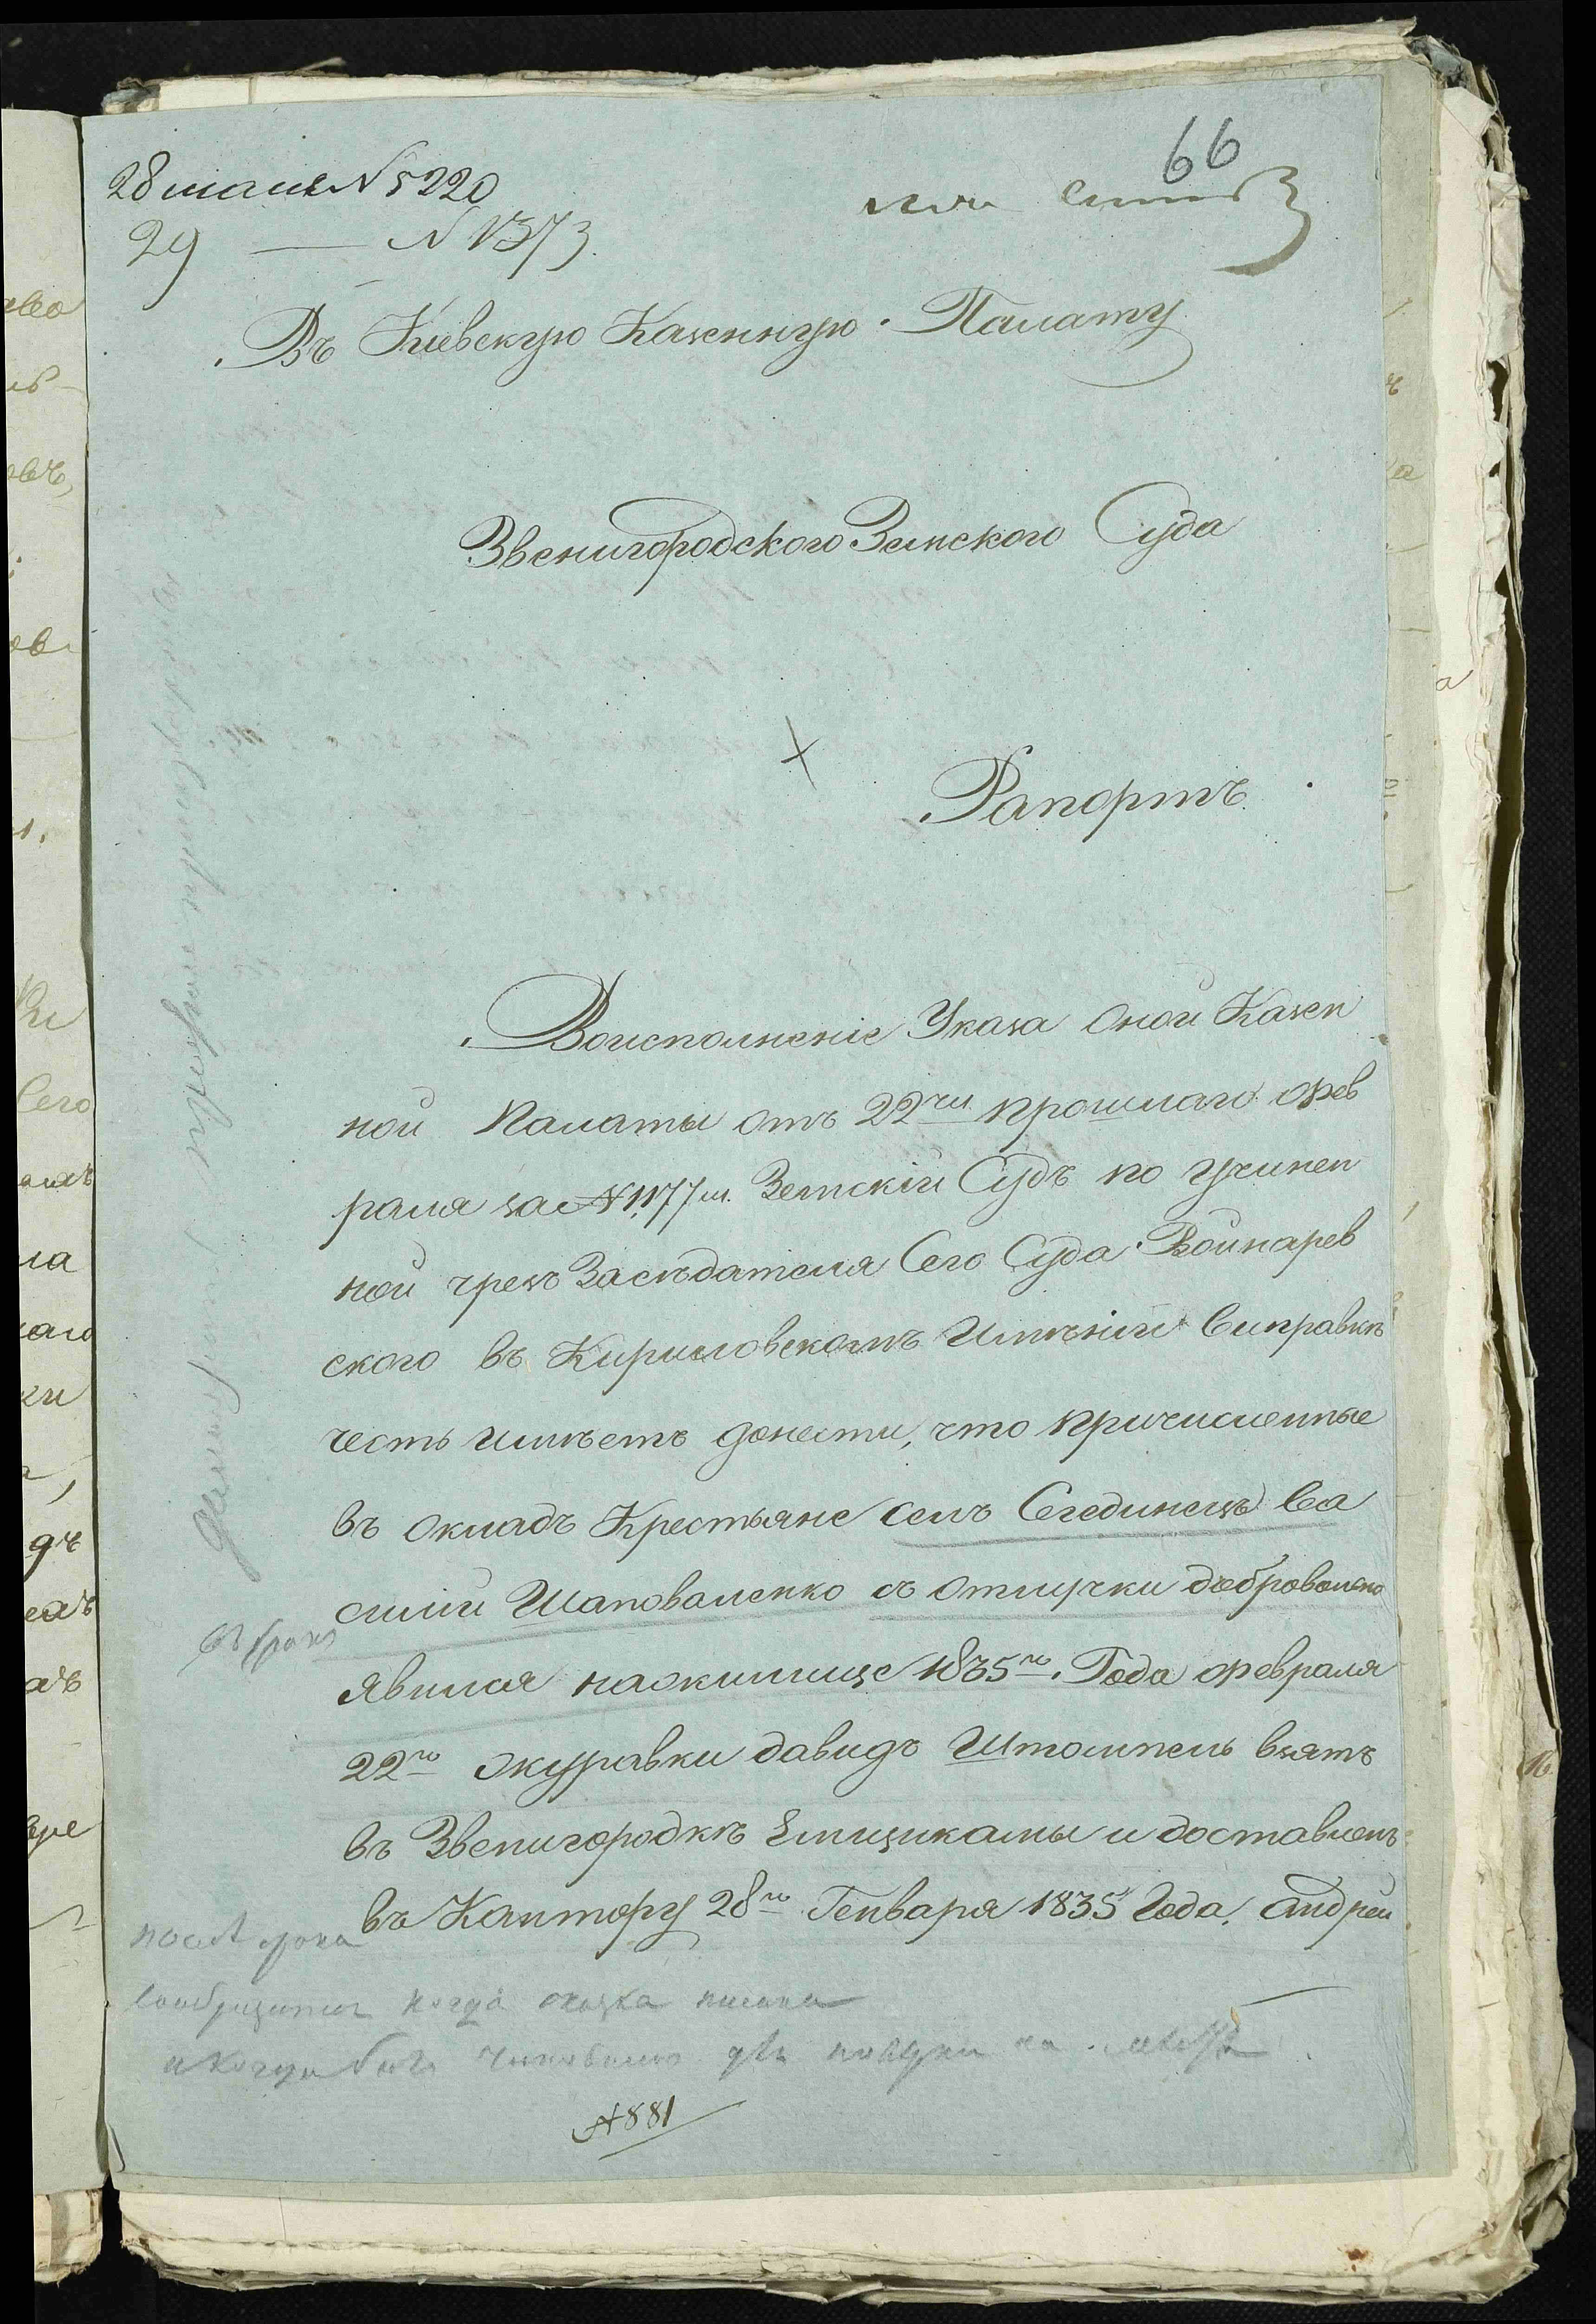 66
28 мая N 5220
29 — N 1373.
Въ Кіевскую Казенную Палату
Звенигородского Земского Суда
Рапортъ.
Воисполненіе Указа Оной Казен
ной Палаты отъ 22го прошлаго фев
раля за N 1177м. Земскій Судъ по учинен
ной чрезъ Заседателя Сего Суда Войнарев
ского въ Кириловскомъ Имѣніи Cиправкѣ
честь имѣетъ донести, что причисленные
въ окладъ Крестьяне селъ Сегединецъ Ва
силий Шаповаленко съ отлучки добровольно
явился нажилище 1835го. Года февраля
22го Журавки давидъ Штомпель взятъ
въ Звенигородкѣ Ямщиками и доставленъ
въ Кантору 28го Генваря 1835 Года, андрей
после срока
сообразится когда сказка писана
N 881